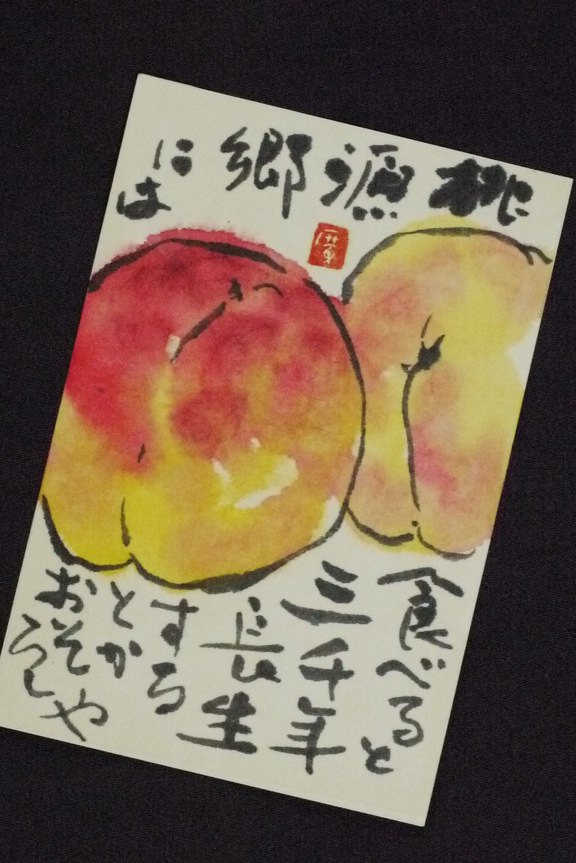 桃源郷
には
食べると
三千年
長生
する
とか
おそろしや